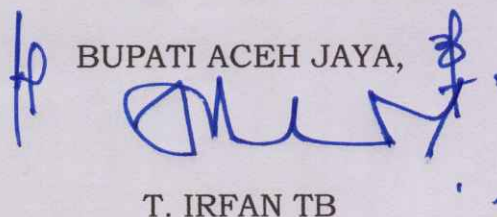 BUPATI ACEH JAYA,
T. IRFAN TB